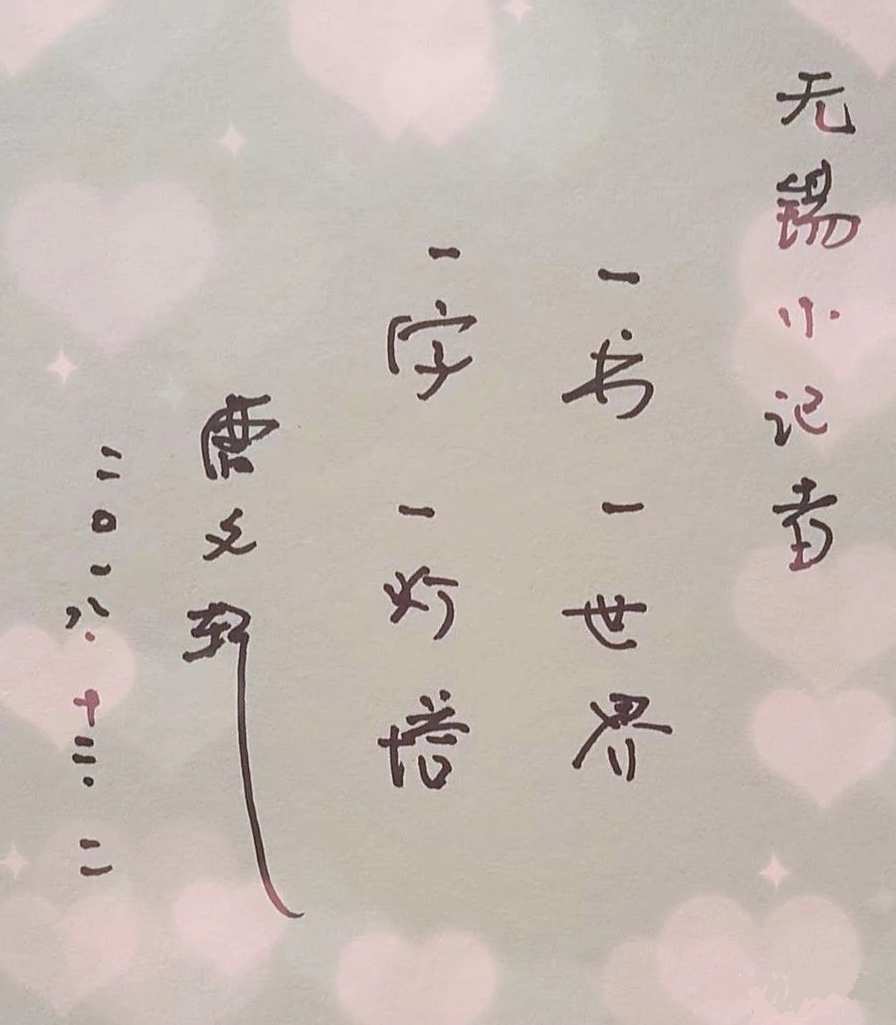 无锡小记者
一书一世界
一字一灯塔
曹文轩
二〇一八.十二.二